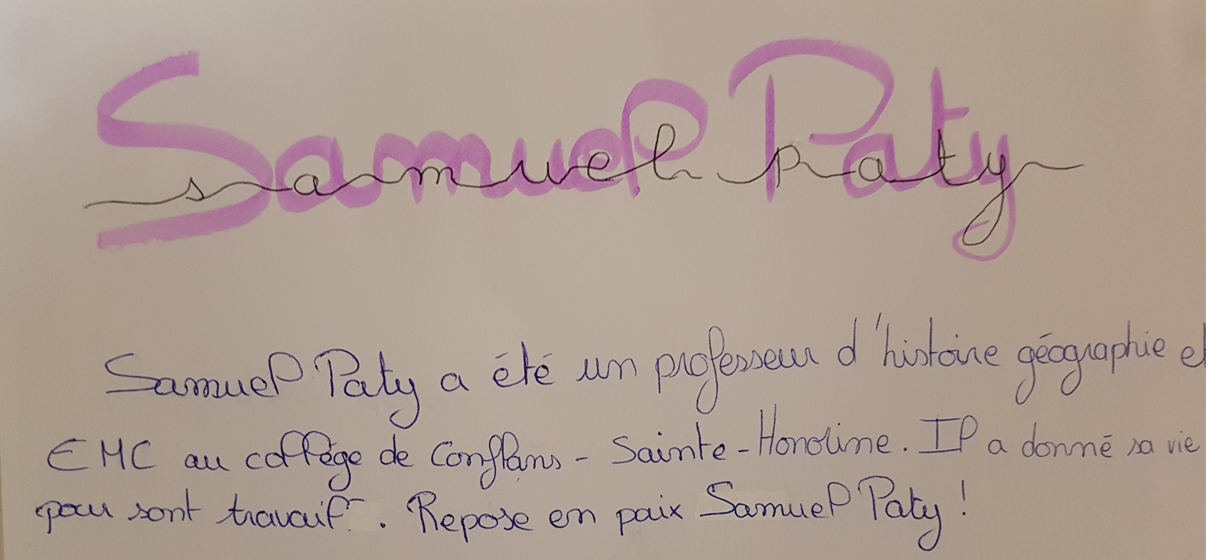 Samuel Paty
samuel paty
Samuel Paty a été un professeur d'histoire géographie et
EMC au collège de Conflans - Sainte - Honorine. Il a donné sa vie
pour sont travail. Repose en paix Samuel Paty !